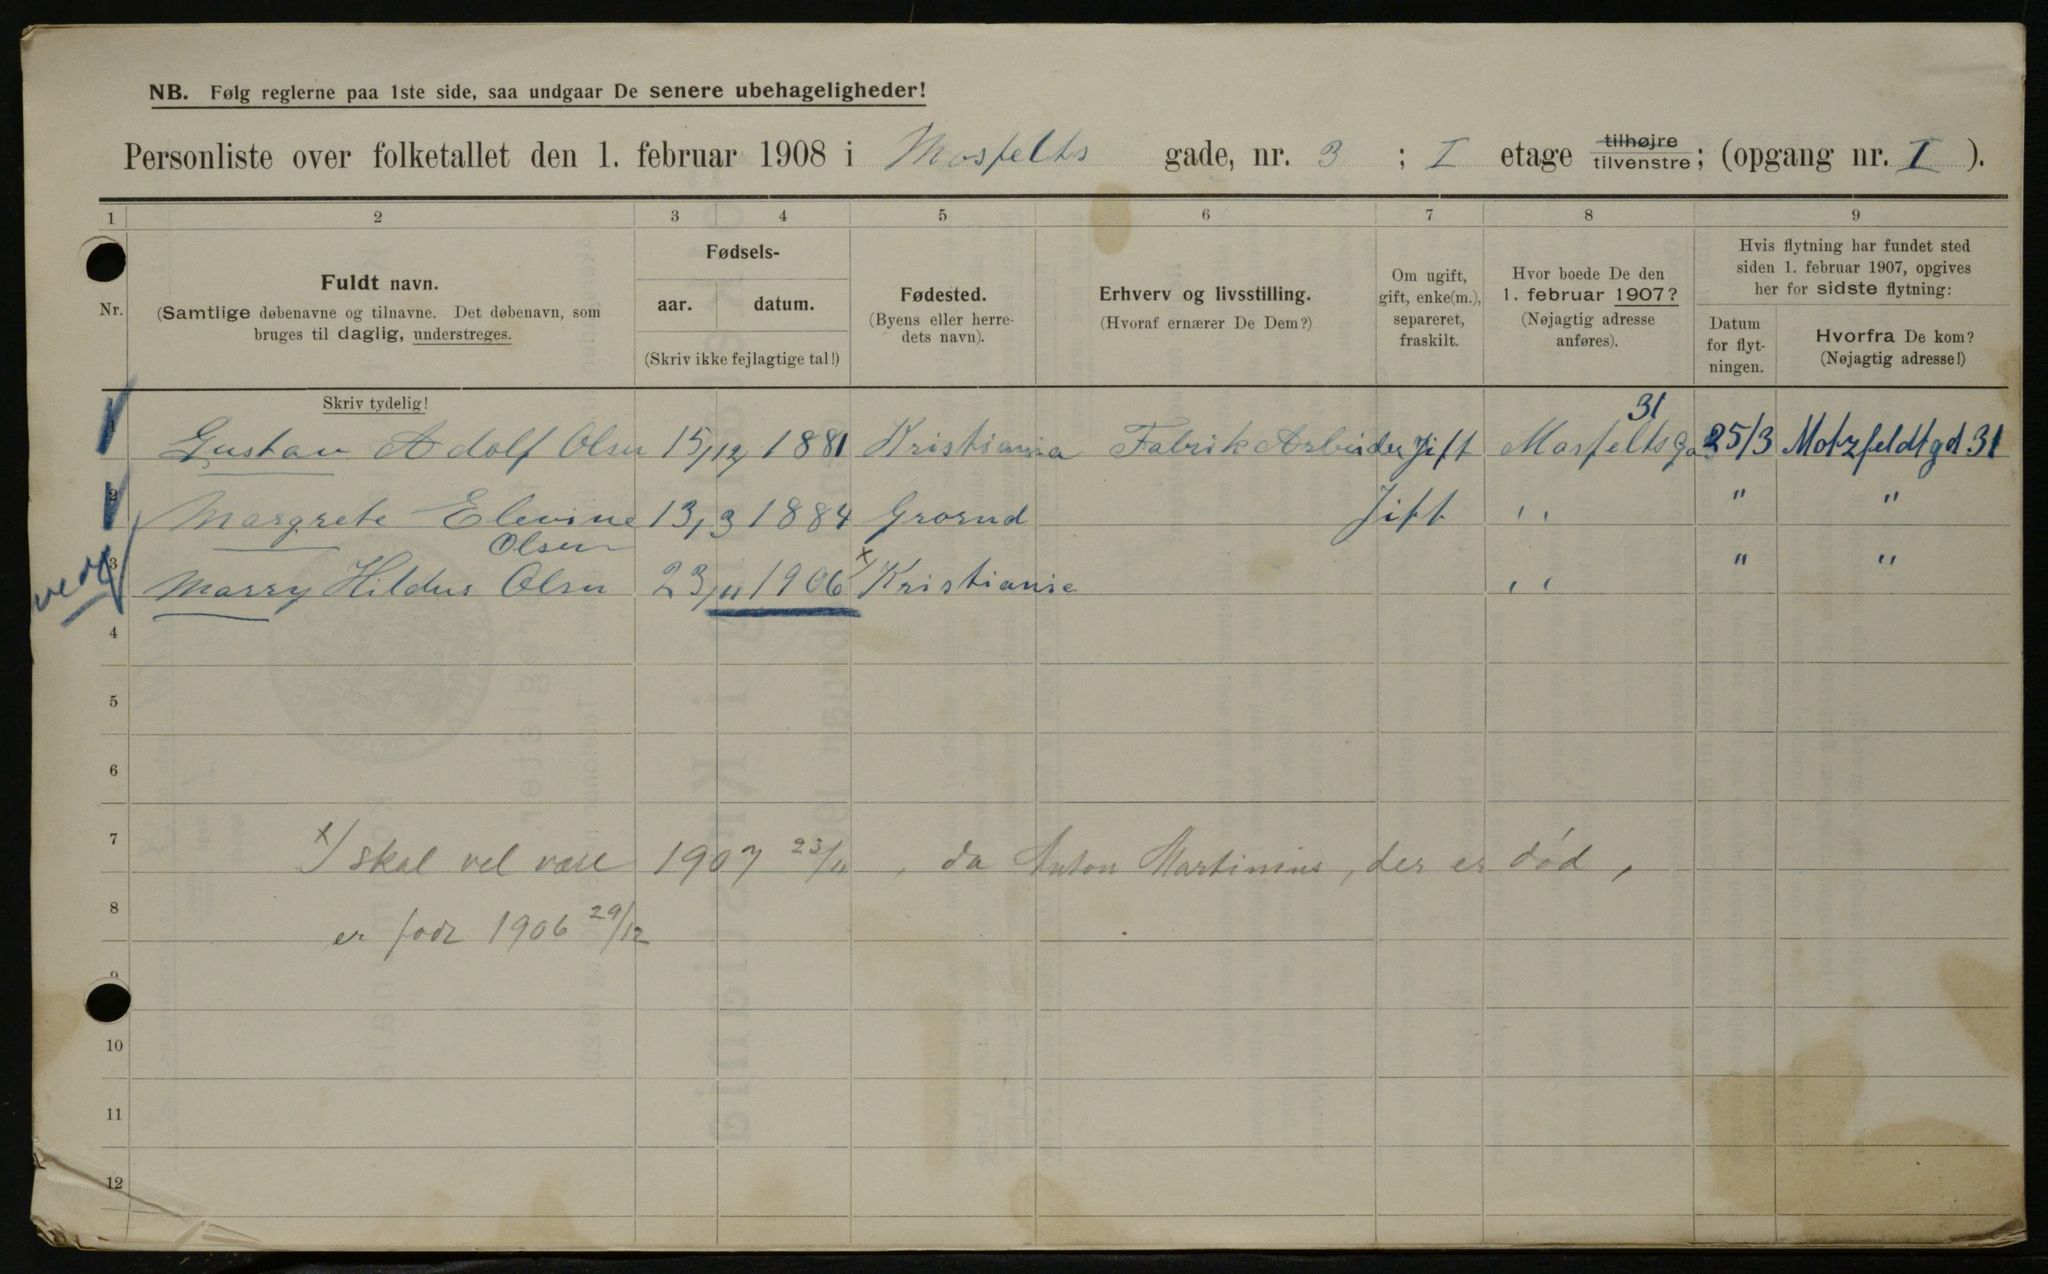 NB. Følg reglerne paa 1ste side, saa undgaar De senere ubehageligheder!
Personliste over folketallet den 1. februar 1908 i Mosfelts gade, nr. 3 ; I etage tilhøjre tilvenstre; (opgang nr. I ).
1 2 3 4 5 6 7 8 9
Nr.
Fuldt navn.
(Samtlige døbenavne og tilnavne. Det døbenavn, som
bruges til daglig, understreges.
Skriv tydelig!
Fødsels-
aar. datum.
(Skriv ikke fejlagtige tal!)
Fødested.
(Byens eller herre-
dets navn).
Erhverv og livsstilling.
(Hvoraf ernærer De Dem?)
Om ugift,
gift, enke(m.),
separeret,
fraskilt.
Hvor boede De den
1. februar 1907?
(Nøjagtig adresse
anføres).
Hvis flytning har fundet sted
siden 1. februar 1907, opgives
her for sidste flytning:
Datum
for flyt-
ningen.
Hvorfra De kom?
(Nøjagtig adresse!)
31
Gustav Adolf Olsen 15/12 1881 Kristiania Fabrik Arbeider Jift Mosfelts Ga 25/3 Motzfeldtgd 31
2 Margrete Elevine 13/3 1884 Grorud Jift " " "
Olsen
3 Marry Hildur Olsen 23/11 1906 x) Kristiania " " "
4
5
6
7 x/ skal vel være 1907 23/11, da Anton Martinius, der er død,
8 er født 1906 29/12
9
10
11
12